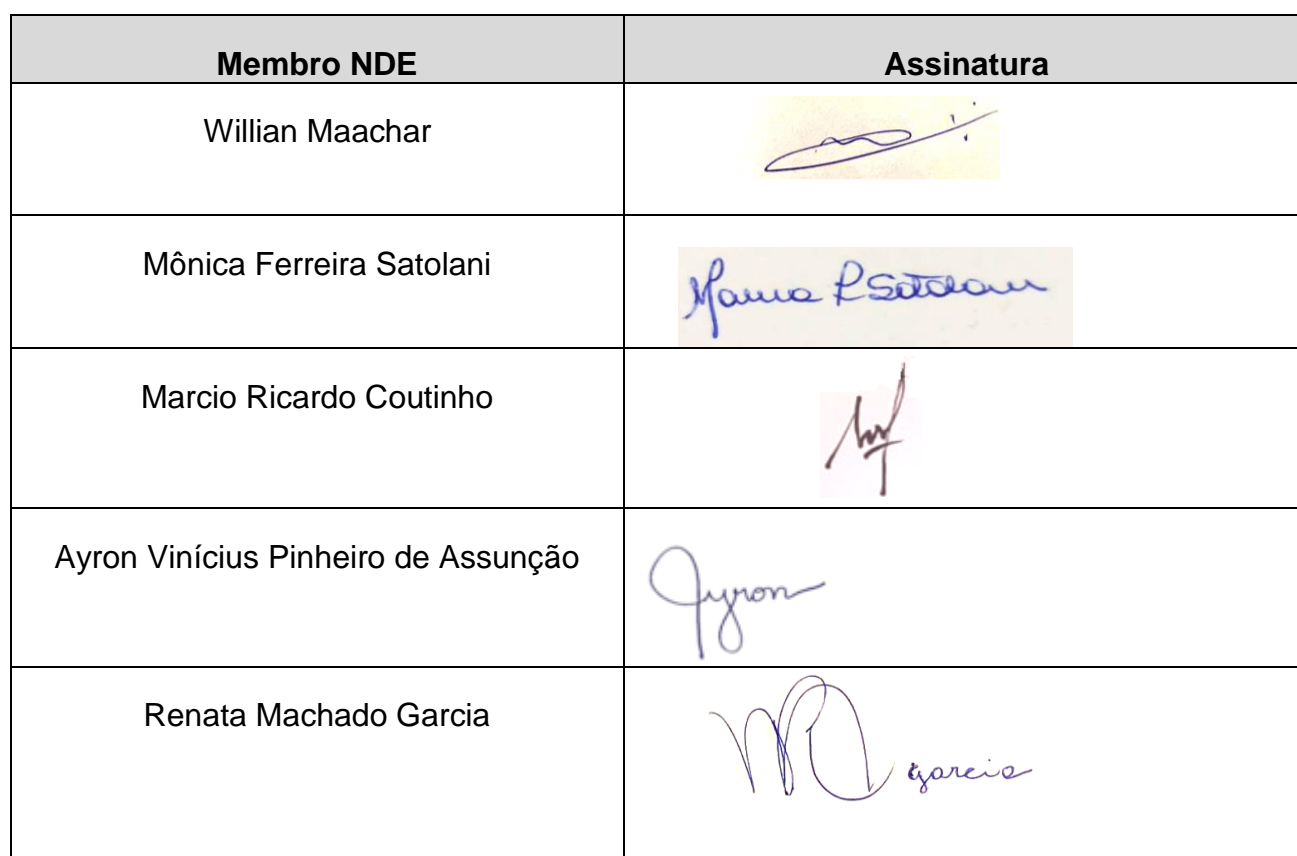 Membro NDE
Assinatura
Willian Maachar
Mônica Ferreira Satolani
Marcio Ricardo Coutinho
Ayron Vinícius Pinheiro de Assunção
Ayron
Renata Machado Garcia
garcia